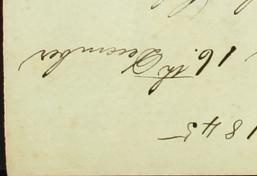 16. th December
1845